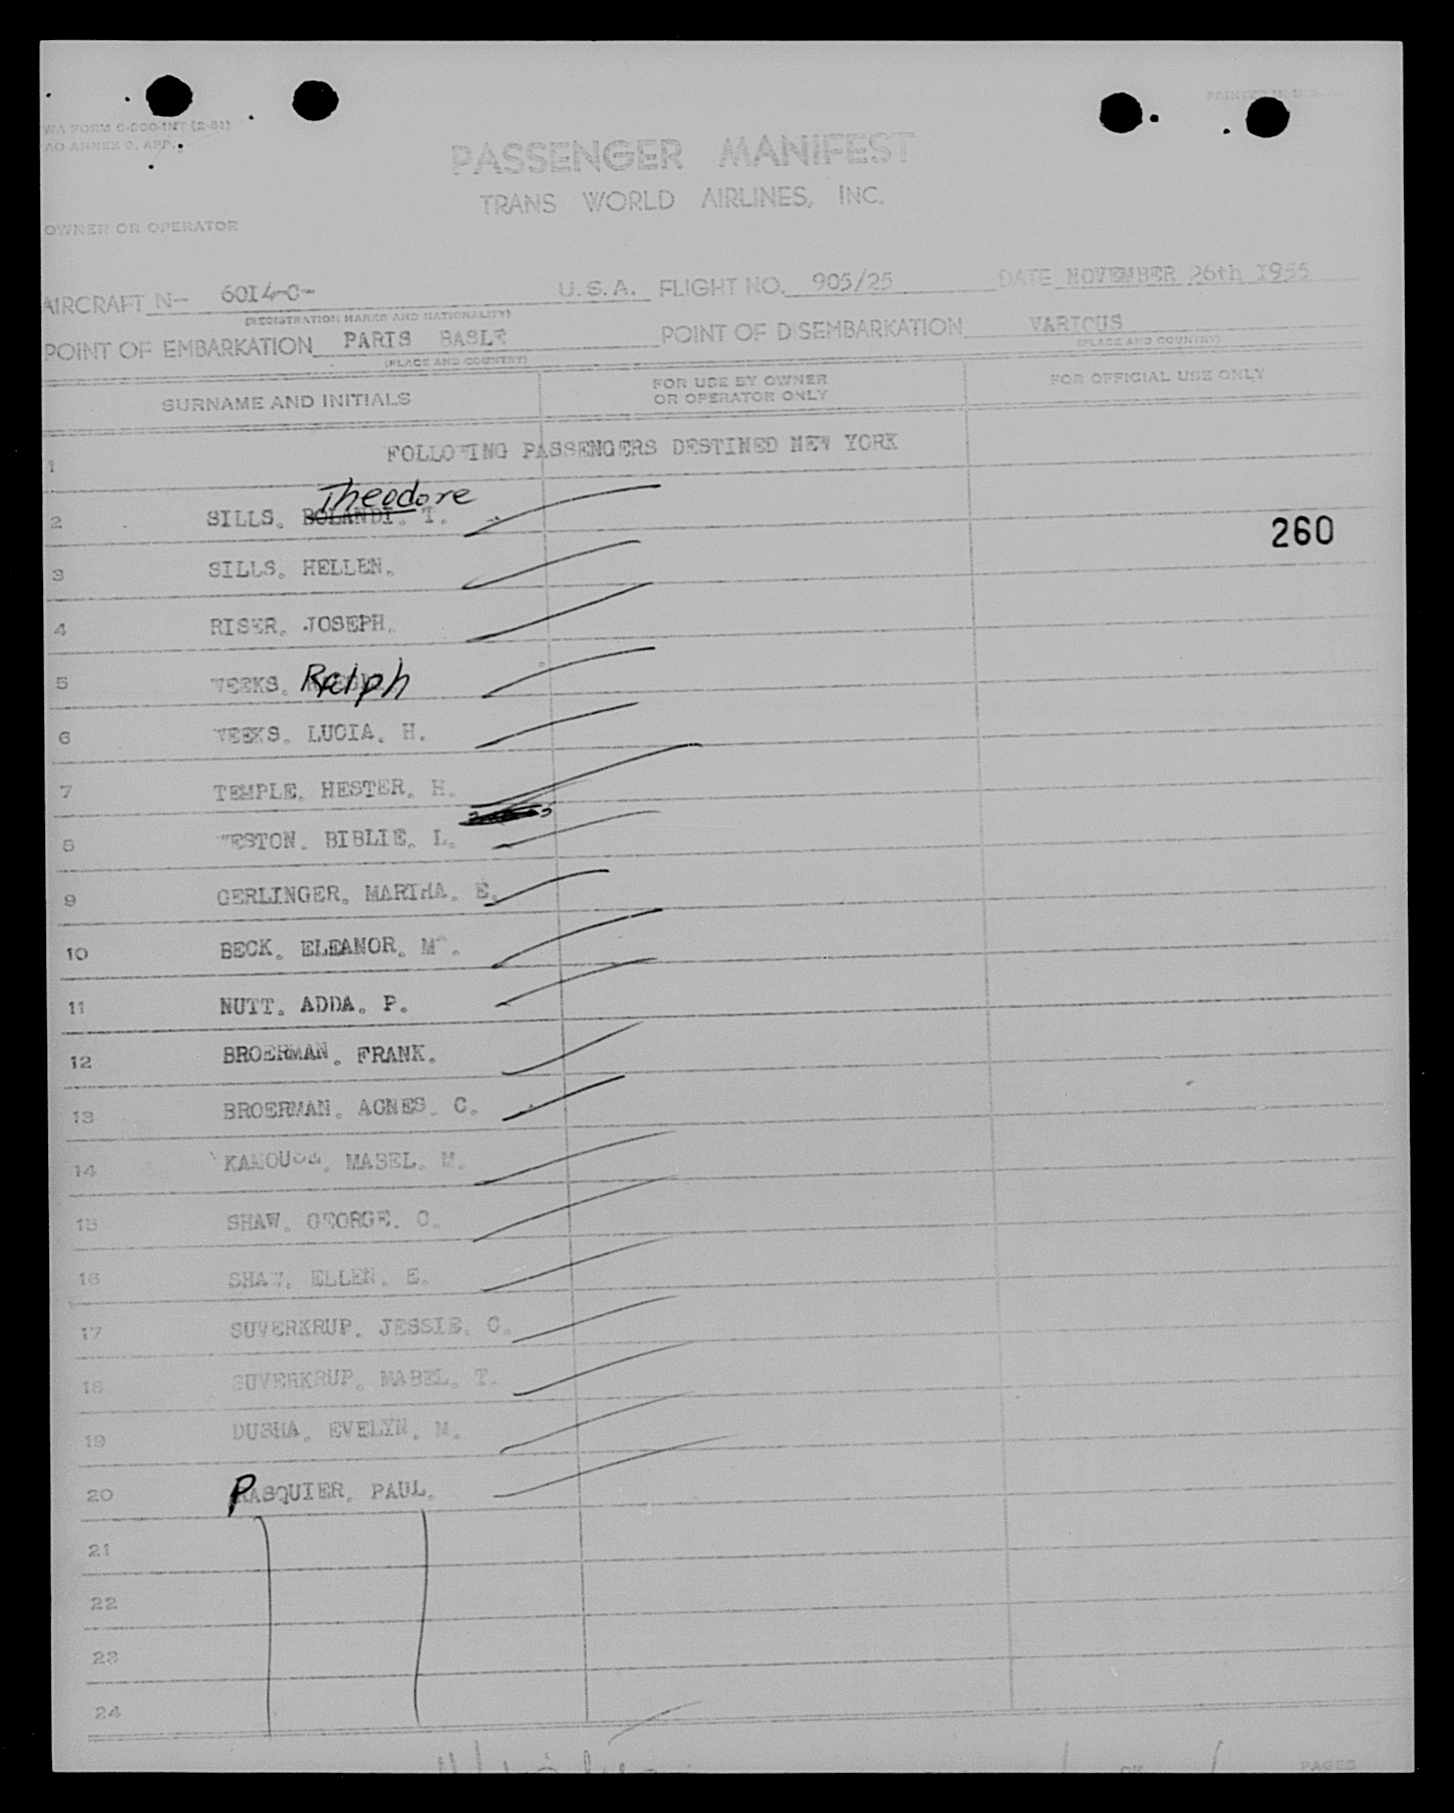 PRINTED IN U.S.A.
WA FORM
AO ANNEX 9, APP.
PASSENGER MANIFEST
TRANS WORLD AIRLINES, INC.
OWNER OR OPERATOR
AIRCRAFT N- 6014-C- U.S.A. FLIGHT NO. 905/25 DATE NOVEMBER 26th 1955
(REGISTRATION MARKS AND NATIONALITY)
POINT OF EMBARKATION PARIS BASLE POINT OF DISEMBARKATION VARIOUS
(PLACE AND COUNTRY) (PLACE AND COUNTRY)
SURNAME AND INITIALS FOR USE BY OWNER OR OPERATOR ONLY FOR OFFICIAL USE ONLY
1 FOLLOWING PASSENGERS DESTINED NEW YORK
Theodore
2 SILLS. BOLANDI. T.
260
3 SILLS. HELLEN.
4 RISER. JOSEPH.
5 WEEKS. Ralph
6 WEEKS. LUCIA. H.
7 TEMPLE. HESTER. H.
8 WESTON. BIBLIE. L.
9 GERLINGER. MARTHA. E.
10 BECK. ELEANOR. M.
11 NUTT. ADDA. P.
12 BROERMAN. FRANK.
13 BROERMAN. AGNES. C.
14 MABEL. M.
15 SHAW. GEORGE. C.
16 SHAW. ELLEN. E.
17 SUVERKRUP. JESSIE. C.
18 SUVERKRUP. MABEL. T.
19 DUSHA. EVELYN. M.
20 PASQUIER. PAUL.
21
22
23
24
PAGES